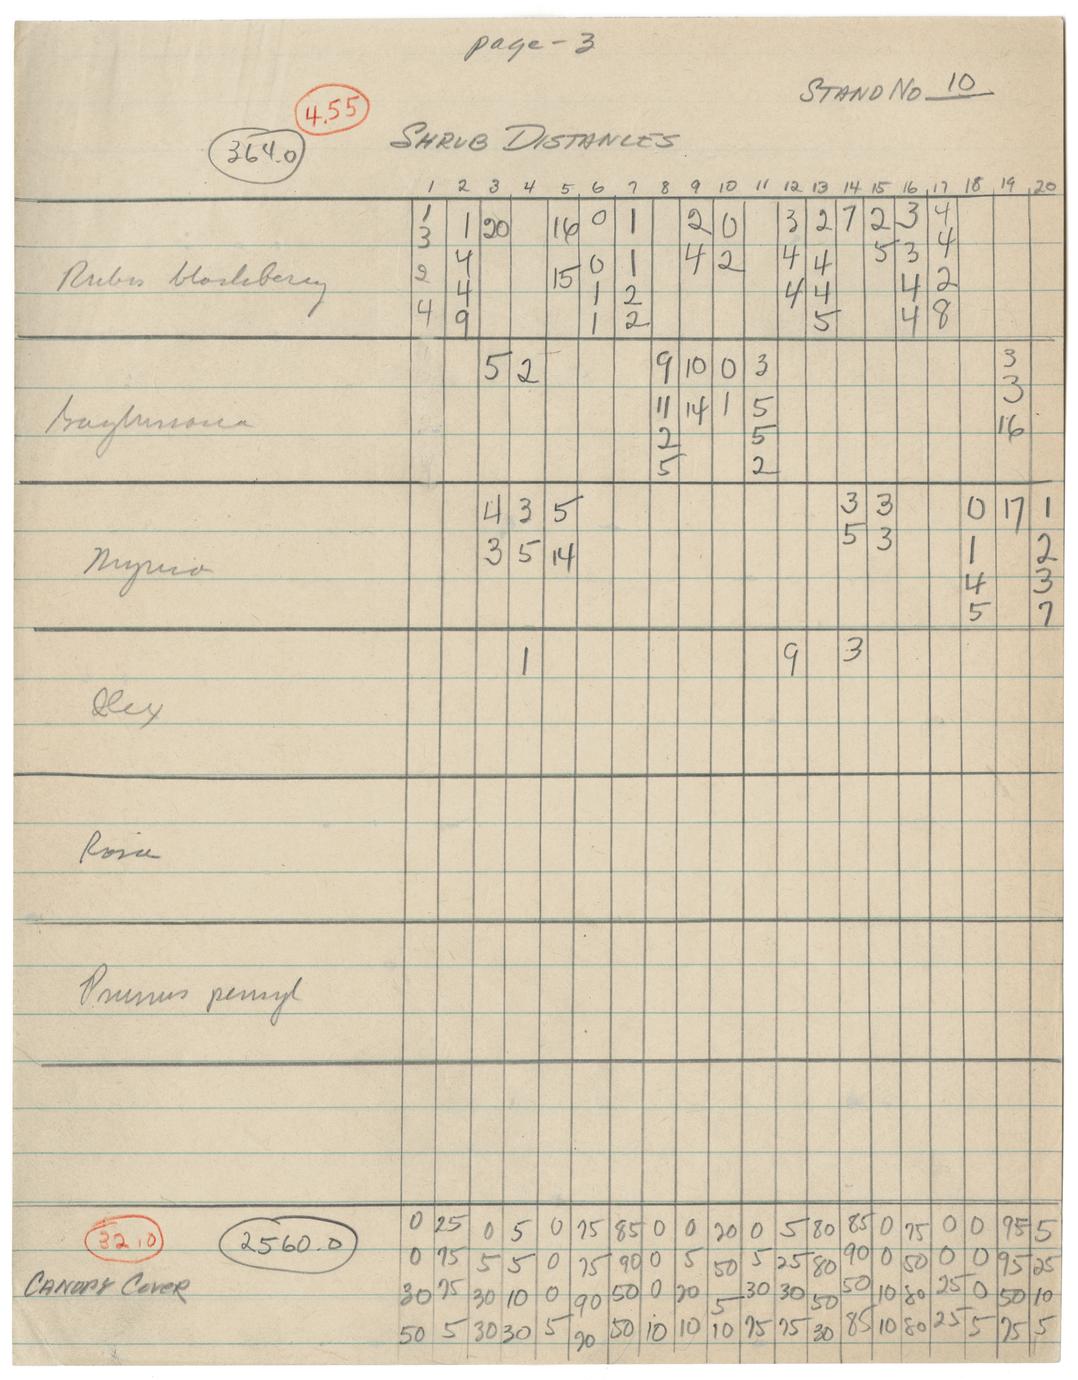 page-3
STAND NO 10
4.55
364.0
SHRUB DISTANCES
1 2 3 4 5 6 7 8 9 10 11 12 13 14 15 16 17 18 19 20
1 1 20 16 0 1 2 0 3 2 7 2 3 4
3 4 15 0 1 4 2 4 4 5 3 4
Rubus blackberry
2 4 1 2 4 4 4 2
4 9 1 2 5 4 8
5 2 9 10 0 3 3
11 14 1 5 3
2 5 16
5 2
4 3 5 3 3 0 17 1
3 5 14 5 3 1 2
Myrica
4 3
5 7
1 9 3
Ilex
Rosa
Prunus pensyl
0 25 0 5 0 75 85 0 0 20 0 5 80 85 0 75 0 0 95 5
32.0
2560.0
0 75 5 5 0 75 90 0 5 50 5 25 80 90 0 50 0 0 95 25
CANOPY COVER
30 75 30 10 0 90 50 0 20 5 30 30 50 50 10 80 25 0 50 10
50 5 30 30 5 20 50 10 10 10 75 75 30 85 10 80 25 5 75 5